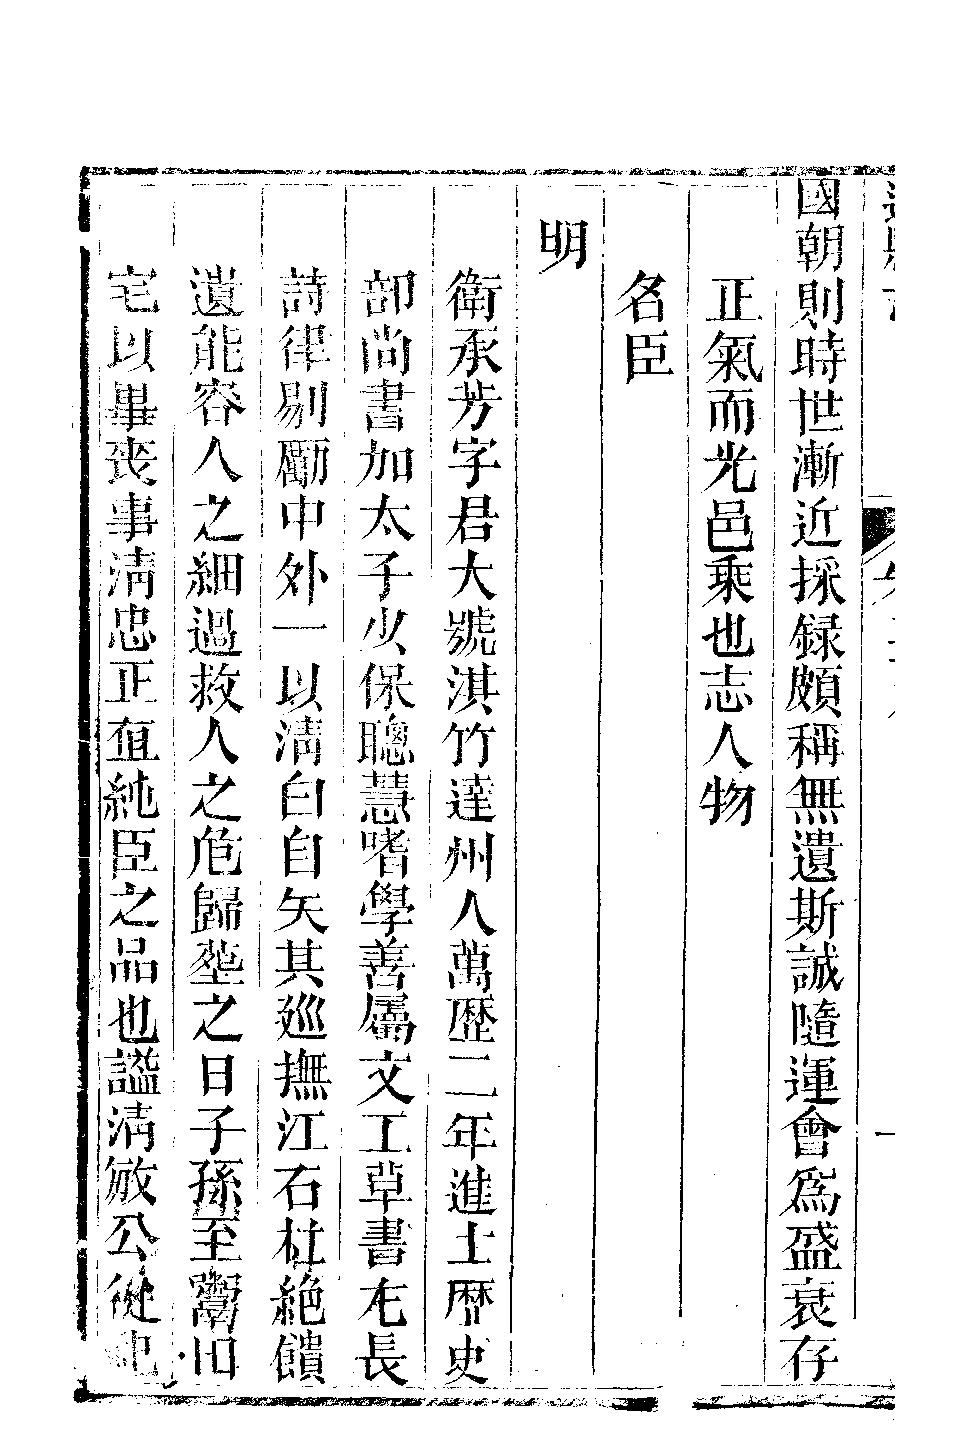 國朝則時世漸近採録頗稱無遺斯誠隨運會爲盛衰存
正氣而光邑乘也志人物
名臣
明
衛承芳字君大號淇竹達州人萬歷二年進士歷史
部尚書加太子少保聰慧嗜學善屬文工草書尤長
詩律剔勵中外一以清白自矢其廵撫江右杜絶饋
遺能容人之細過救人之危歸塟之日子孫至鬻旧
宅以畢丧事清忠正直純臣之品也諡清敏公從祀